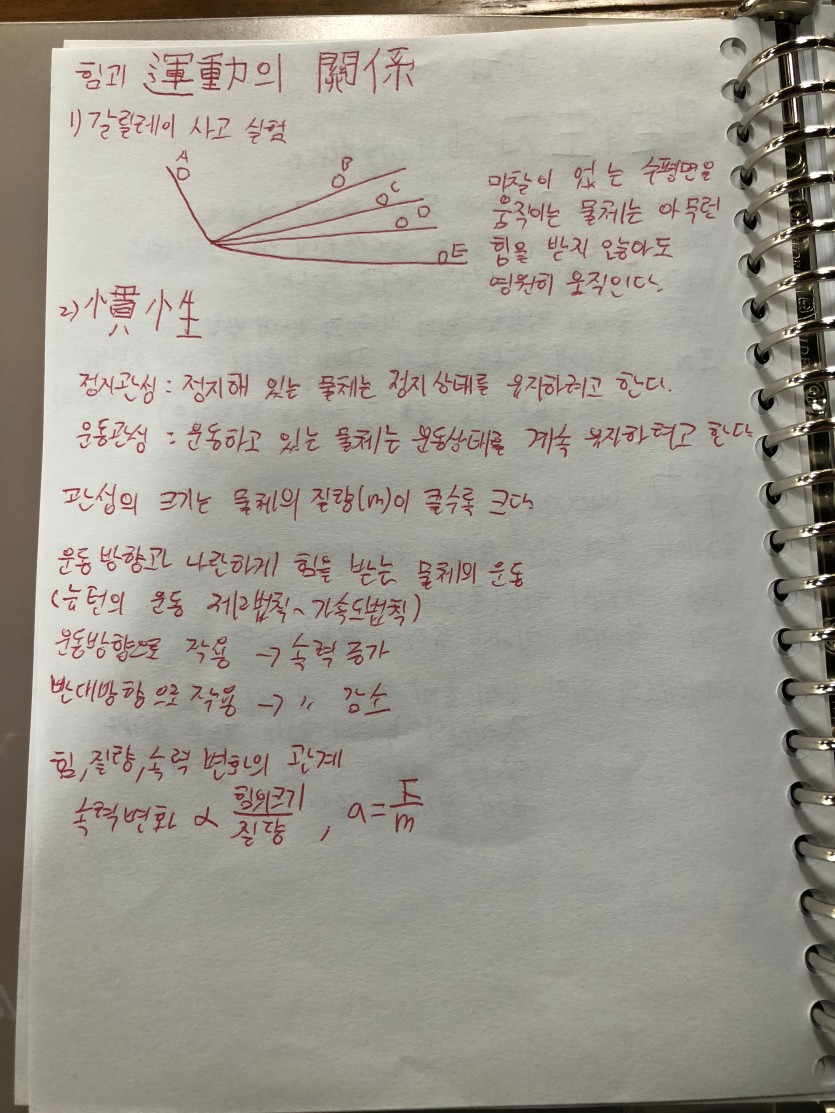 힘과 運動의 關係
1) 갈릴레이 사고 실험
A
B
C
D
E
마찰이 없는 수평면을
움직이는 물체는 아무런
힘을 받지 않아도
영원히 움직인다.
2) 慣性
정지관성 : 정지해 있는 물체는 정지상태를 유지하려고 한다.
운동관성 : 운동하고 있는 물체는 운동상태를 계속 유지하려고 한다.
관성의 크기는 물체의 질량(m)이 클수록 크다.
운동방향과 나란하게 힘을 받는 물체의 운동
(뉴턴의 운동 제2법칙~가속도법칙)
운동방향으로 작용 → 속력 증가
반대방향으로 작용 → 〃 감소
힘, 질량, 속력 변화의 관계
속력변화 ∝ 힘의크기/질량, a=F/m